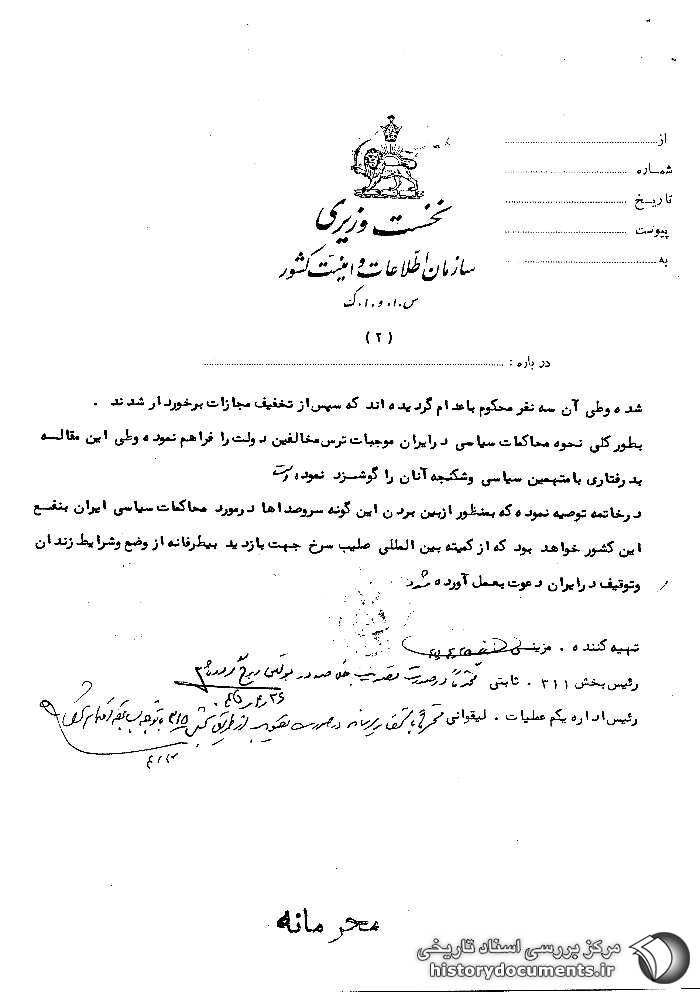 از
شماره
تاریخ
پیوست
به
نخست وزیری
سازمان اطلاعات و امنیت کشور
س.ا.و.ا.ک
(۲)
درباره :
شده وطی آن سه نفر محکوم باعدام گردیده اند که سپس از تخفیف مجازات برخوردار شدند .
بطور کلی نحوه محاکمات سیاسی در ایران موجبات ترس مخالفین دولت را فراهم نموده وطی این مقاله
بدرفتاری با متهمین سیاسی وشکنجه آنان را گوشزد نموده است
درخاتمه توصیه نموده که بمنظور ازبین بردن این گونه سروصداها درمورد محاکمات سیاسی ایران بنفع
این کشور خواهد بود که از کمیته بین المللی صلیب سرخ جهت بازدید بیطرفانه از وضع وشرایط زندان
وتوقیف در ایران دعوت بعمل آورده شود
تهیه کننده . مزینی
رئیس بخش ۳۱۱ . ثابتی محترماً در صورت تصویب خلاصه در
رئیس اداره یکم عملیات . لیقوانی در صورت تصویب از طریق بخش
محرمانه
مرکز بررسی اسناد تاریخی
historydocuments.ir